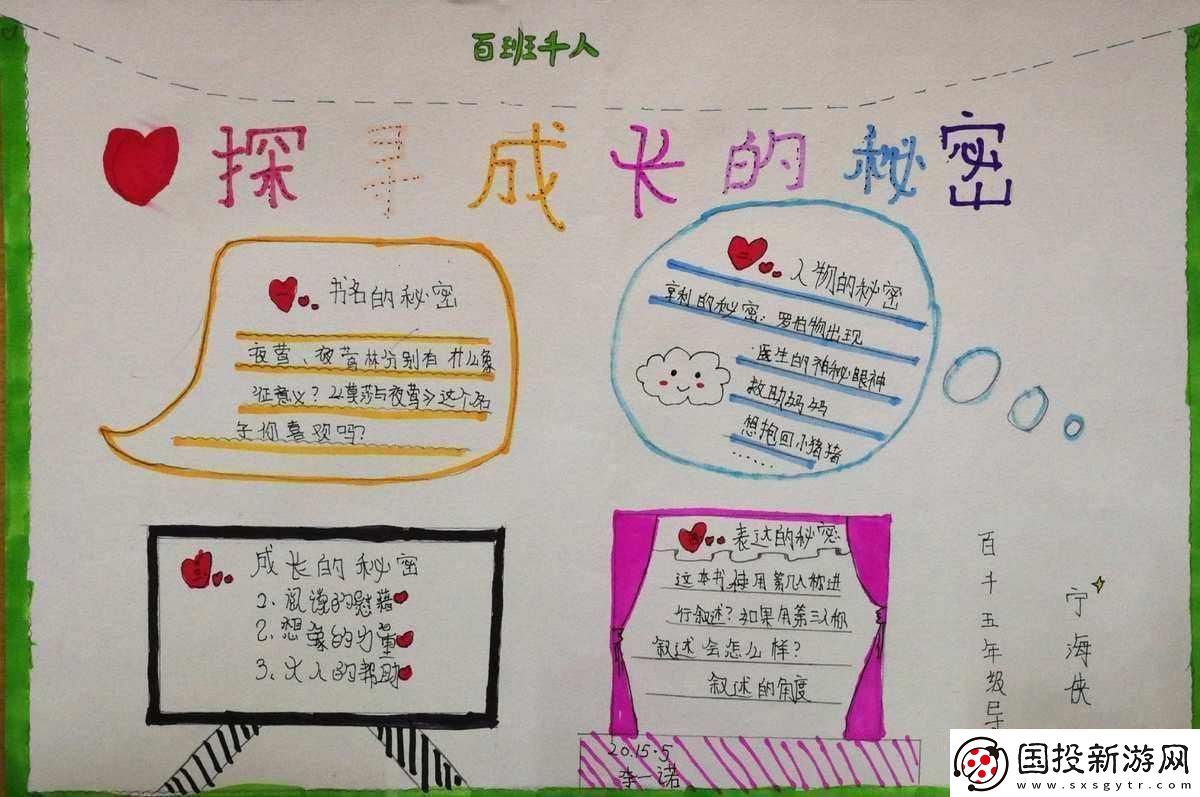 百班千人
探寻成长的秘密
一
书名的秘密
夜莺、夜莺林分别有什么象
征意义?《莫莎与夜莺》这个名
字你喜欢吗?
二
人物的秘密
亨利的秘密:罗伯物出现
医生的神秘眼神
救助妈妈
想抱回小猪猪
……
三
成长的秘密
1、阅读的慰藉
2、想象的力量
3、大人的帮助
四
表达的秘密
这本书使用第几人称进
行叙述?如果用第三人称
叙述会怎么样?
叙述的角度
2015.5
李一诺
百千五年级导
宁海侠
国投新游网
www.sxsgytr.com